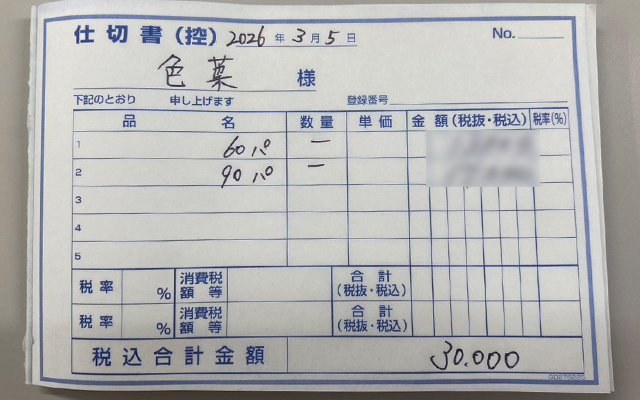 仕切書(控) 2026年3月5日 No.
色葉 様
下記のとおり 申し上げます 登録番号
品名 数量 単価 金額(税抜・税込) 税率(%)
1 60パ 一
2 90パ 一
3
4
5
税率 % 消費税額等 合計(税抜・税込)
税率 % 消費税額等 合計(税抜・税込)
税込合計金額 30.000